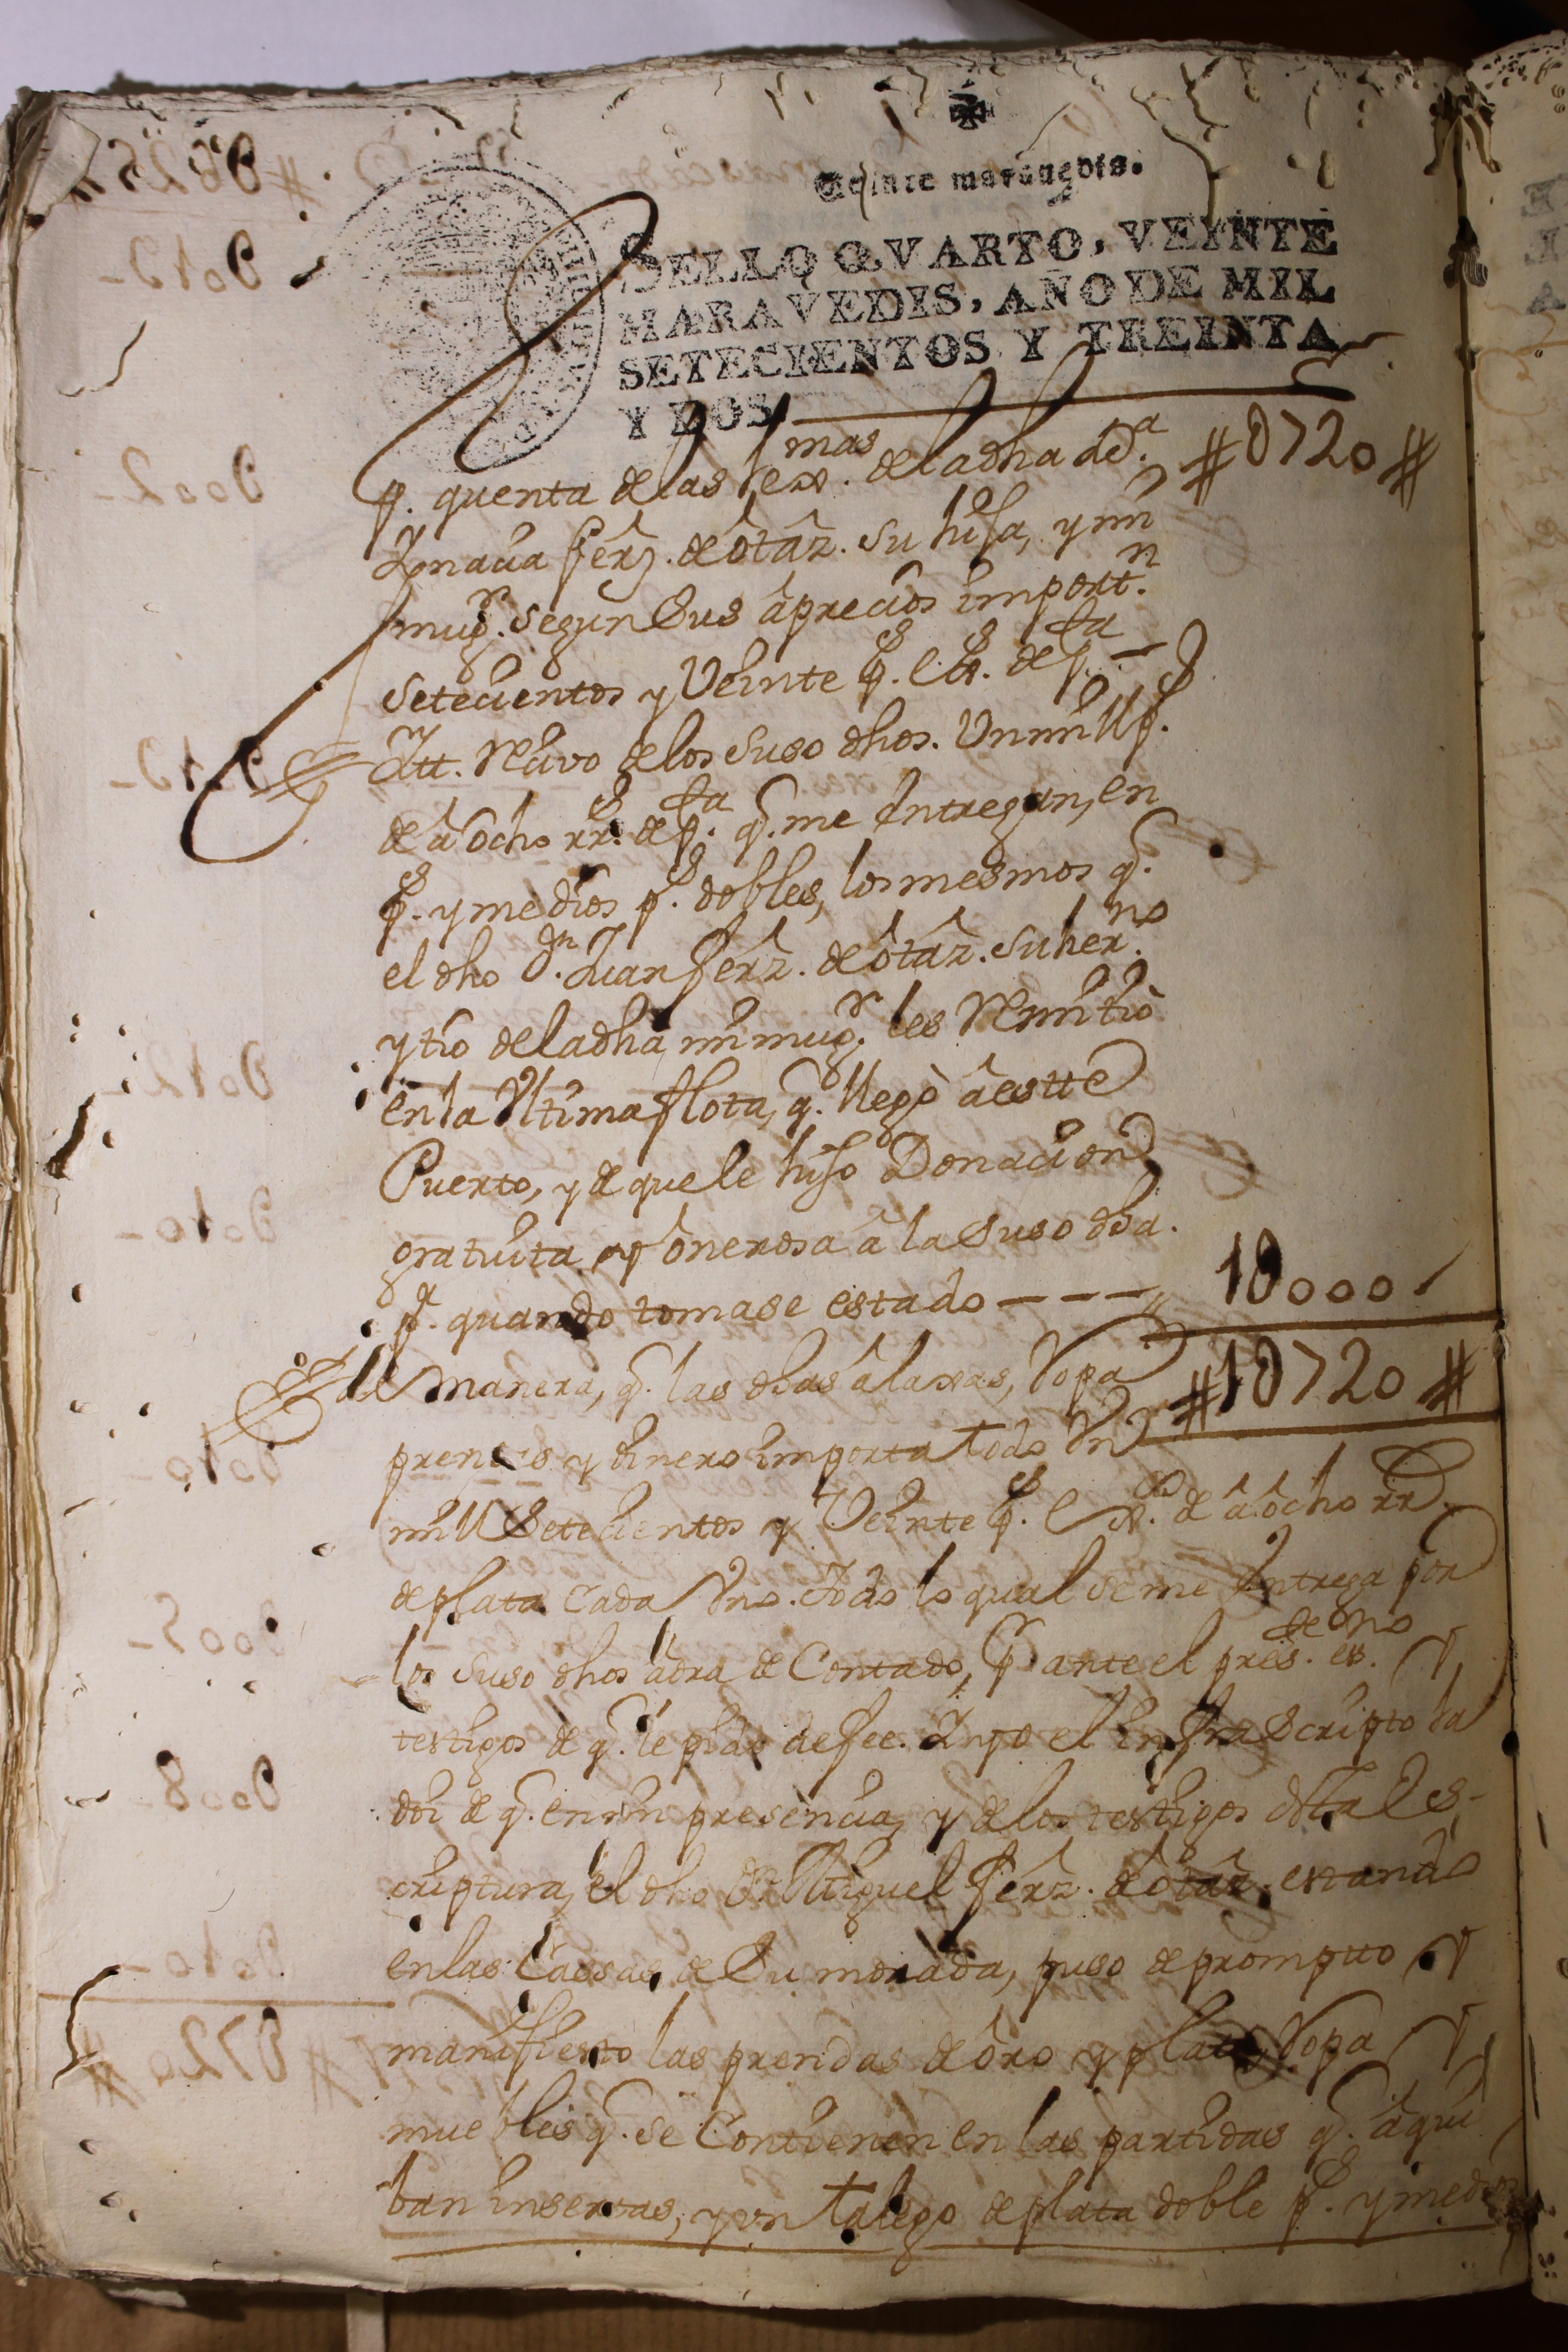 Veinte maravedis.
SELLO QVARTO, VEINTE
MARAVEDIS, AÑO DE MIL
SETECIENTOS Y TREINTA
Y DOS.
p. quenta de las lex.mas de la dha dª. #U720#
Ignacia ferz. de ôtâz. su hija, y mi
mugr. segun sus âprecios import.n
setecientos y Veinte ps. es. de pta —
Itt. Reciuo de los suso dhos. Un mill ps.
de â ocho rrs. de pta. q. me Entregan, en
ps. y medios ps. dobles, los mesmos q.
el dho Dn. Juan ferz. de ôtâz. su her.no
y tio de la dha mi mugr. les Remitiò
en la Vltima flota, q. llegò â estte
Puerto, y de que le hiso Donacion
gratuita y ônerosa â la suso dha.
pa. quando tomase estado ---- 1U000
de manera, q. las dhas âlaxas, Ropa #1U720#
prendas y dinero importa todo Vn
mill Setecientos y Veinte ps. es. de â ocho rr.
de plata cada Vno. todo lo qual se me Entrega por
los suso dhos âora de Contado, pr. ante el pres.te es.no y
testigos de q. le pido de fee. Y yo el infraescripto la
doi de q. en mi presencia, y de los testigos desta es-
criptura, el dho Dn. Miguel ferz. de ôtâz. estando
en las Cassas de Su morada, puso de prompto y
manifiesto las prendas de ôro y plata, Ropa y
muebles q. se Contienen en las partidas q. âqui
ban insertas, y un talego de plata doble ps. y medios